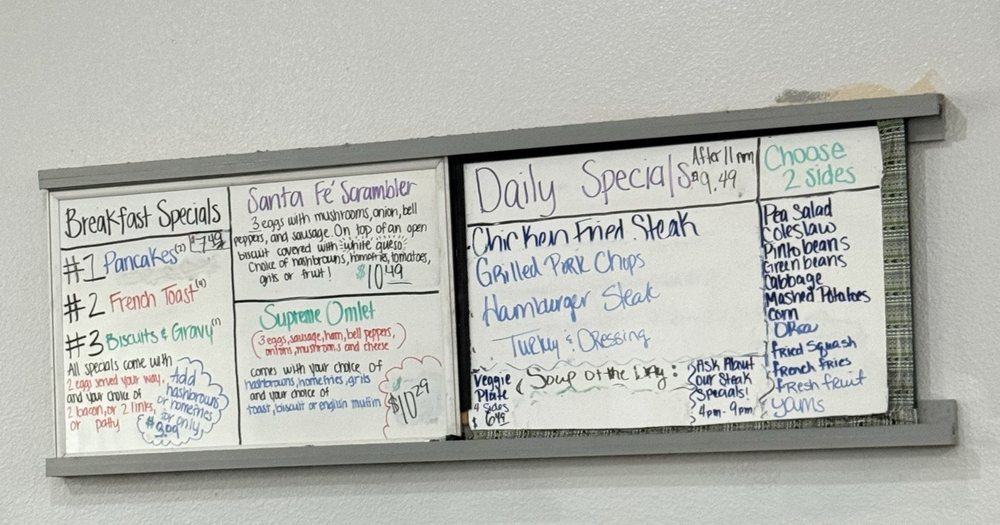 Breakfast Specials
$7.49
#1 Pancakes(2)
#2 French Toast(4)
#3 Biscuits & Gravy(1)
All specials come with
2 eggs served your way,
and your choice of
2 bacon, or 2 links,
or patty
Add
hashbrowns
or homefries
for only
Santa Fé Scrambler
3 eggs with mushrooms, onion, bell
peppers, and sausage. On top of an open
biscuit covered with white queso.
Choice of hashbrowns, homefries, tomatoes,
grits or fruit! $10.49
Supreme Omlet
(3 eggs, sausage, ham, bell peppers,
onions, mushrooms and cheese
comes with your choice of
hashbrowns, homefries, grits
and your choice of
toast, biscuit or english muffin
$10.29
Daily Specials
After 11 am
$9.49
Chicken Fried Steak
Grilled Pork Chops
Hamburger Steak
Turkey & Dressing
Veggie
Plate
4 sides
$6.49
Soup of the Day:
Ask About
our Steak
Specials!
4pm-9pm
Choose
2 sides
Pea Salad
Coleslaw
Pinto beans
Green beans
Cabbage
Mashed Potatoes
Corn
Okra
fried Squash
french fries
fresh fruit
yams